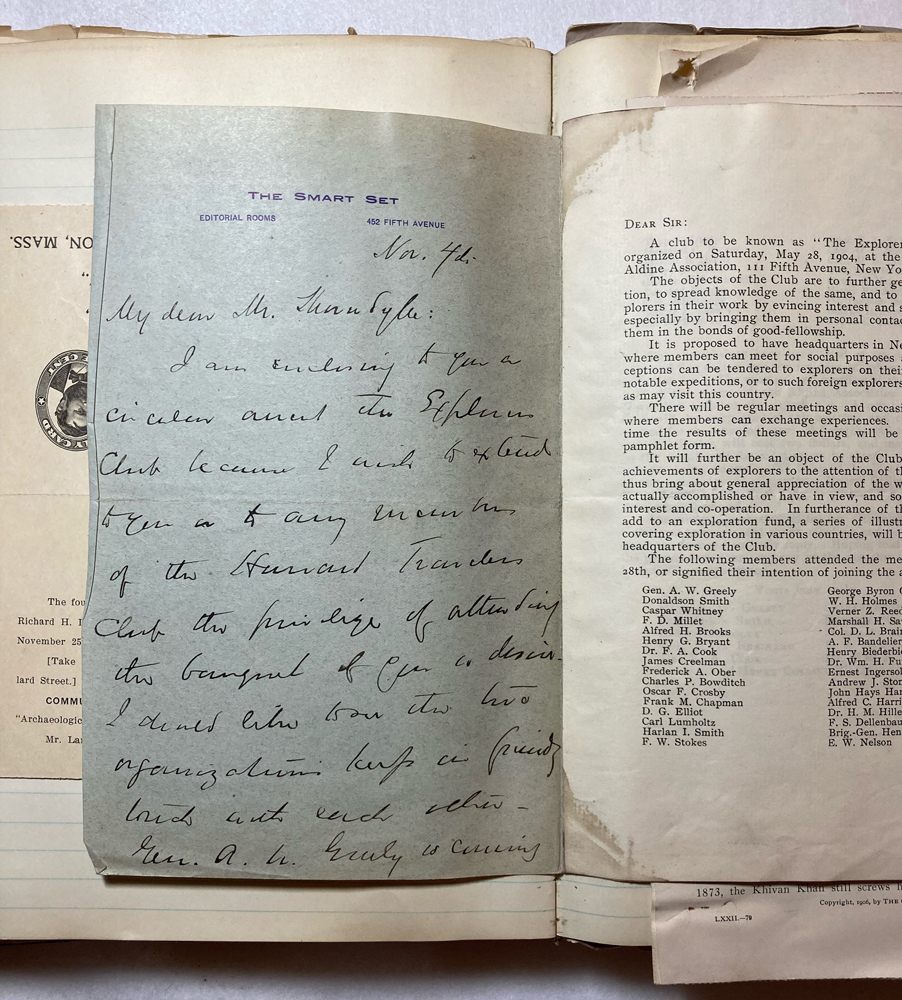 ON, MASS.
The fou
Richard H.
November 25
[Take
lard Street.]
COMMU
"Archaeologic
Mr. Lar
THE SMART SET
EDITORIAL ROOMS 452 FIFTH AVENUE
Nov. 4th
My dear Mr. Thorndyke:
I am enclosing to you a
circular anent the Explorers
Club because I wish to extend
to you or to any members
of the Harvard Travelers
Club the privilege of attending
the banquet if you so desire.
I would like to see the two
organizations keep in friendly
touch with each other –
Gen. A. W. Greely is coming
DEAR SIR:
A club to be known as "The Explorer
organized on Saturday, May 28, 1904, at the
Aldine Association, 111 Fifth Avenue, New Yo
The objects of the Club are to further ge
tion, to spread knowledge of the same, and to
plorers in their work by evincing interest and s
especially by bringing them in personal conta
them in the bonds of good-fellowship.
It is proposed to have headquarters in Ne
where members can meet for social purposes
ceptions can be tendered to explorers on thei
notable expeditions, or to such foreign explorers
as may visit this country.
There will be regular meetings and occasi
where members can exchange experiences.
time the results of these meetings will be
pamphlet form.
It will further be an object of the Club
achievements of explorers to the attention of th
thus bring about general appreciation of the w
actually accomplished or have in view, and so
interest and co-operation. In furtherance of th
add to an exploration fund, a series of illustr
covering exploration in various countries, will b
headquarters of the Club.
The following members attended the me
28th, or signified their intention of joining the a
Gen. A. W. Greely
Donaldson Smith
Caspar Whitney
F. D. Millet
Alfred H. Brooks
Henry G. Bryant
Dr. F. A. Cook
James Creelman
Frederick A. Ober
Charles P. Bowditch
Oscar F. Crosby
Frank M. Chapman
D. G. Elliot
Carl Lumholtz
Harlan I. Smith
F. W. Stokes
George Byron
W. H. Holmes
Verner Z. Reed
Marshall H. Sa
Col. D. L. Brain
A. F. Bandelier
Henry Biederbi
Dr. Wm. H. Fu
Ernest Ingersol
Andrew J. Ston
John Hays Ham
Alfred C. Harri
Dr. H. M. Hille
F. S. Dellenbau
Brig.-Gen. Hen
E. W. Nelson
1873, the Khivan Khan still screws h
Copyright, 1906, by THE
LXXII.—79